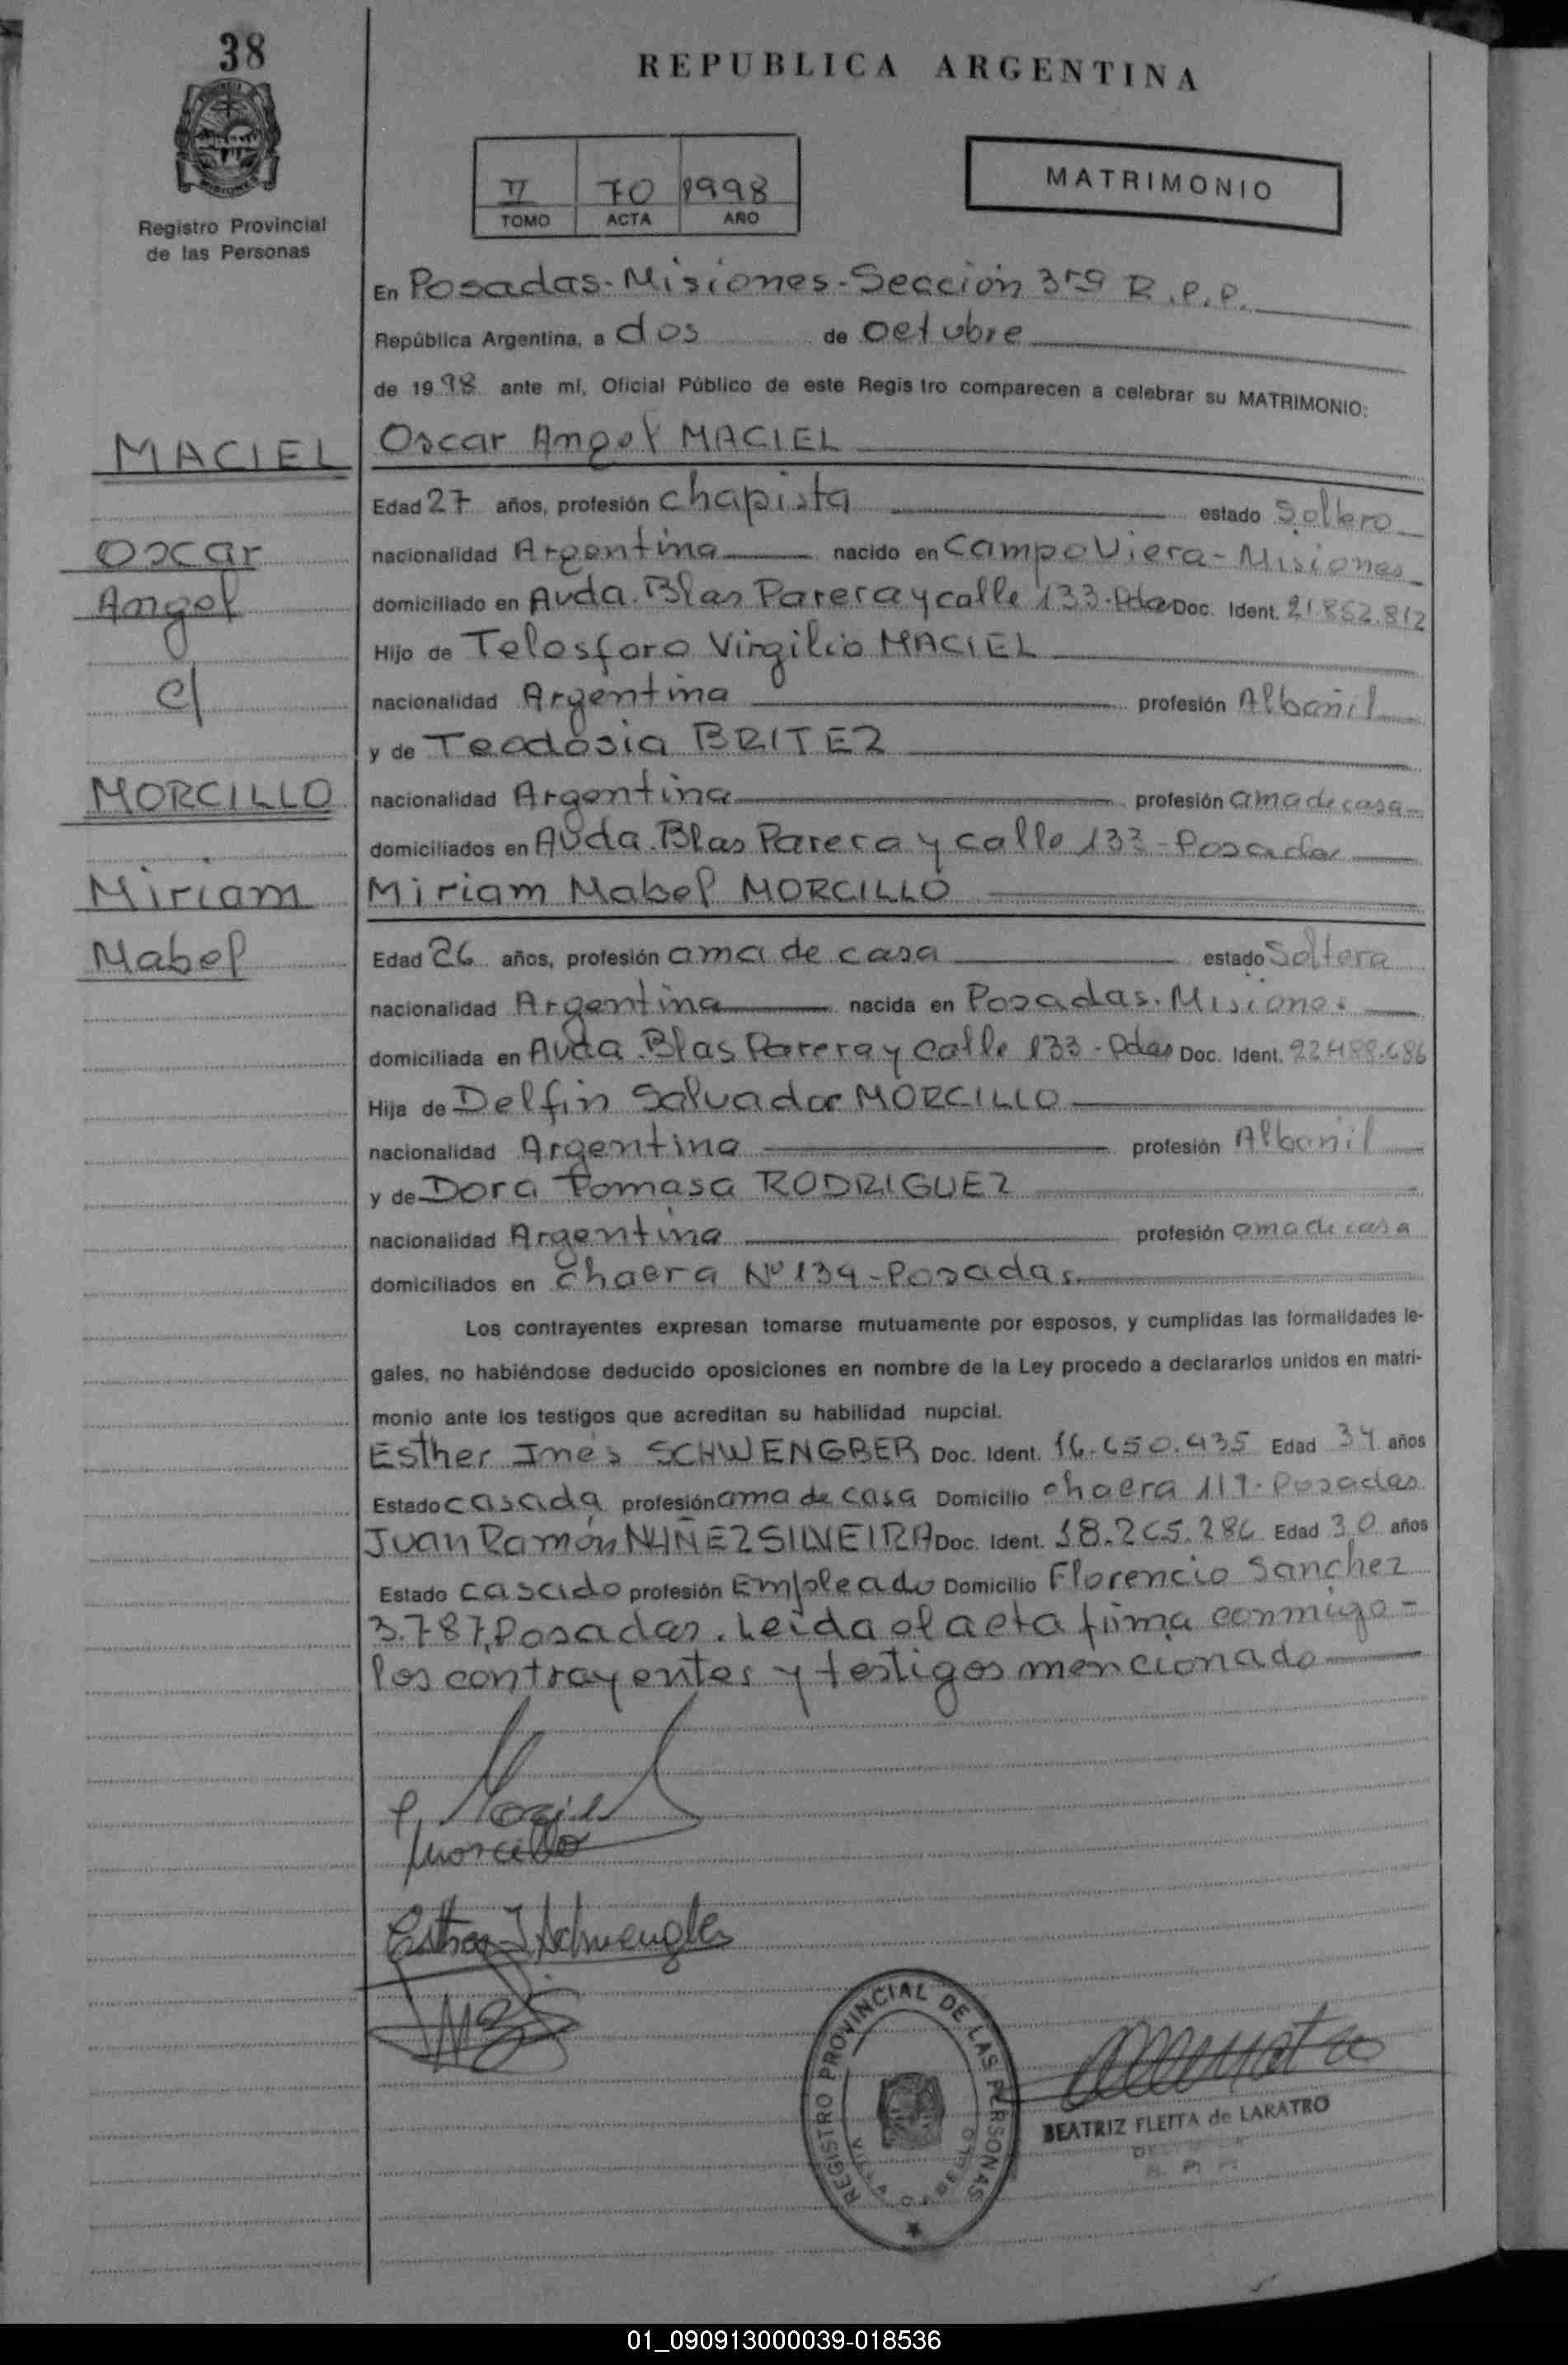 38
REPUBLICA ARGENTINA
MISIONES
Registro Provincial
de las Personas
II 70 1998
TOMO ACTA AÑO
MATRIMONIO
En Posadas-Misiones-Sección 3ra R.P.P.
República Argentina, a dos de octubre
de 1998 ante mí, Oficial Público de este Registro comparecen a celebrar su MATRIMONIO:
MACIEL
Oscar Angel MACIEL
Edad 27 años, profesión chapista estado Soltero
Oscar
nacionalidad Argentina nacido en Campo Viera-Misiones
Angel
domiciliado en Avda. Blas Parera y calle 133-Pdas Doc. Ident. 21.852.812
Hijo de Telesforo Virgilio MACIEL
c/
nacionalidad Argentina profesión Albañil
y de Teodosia BRITEZ
MORCILLO
nacionalidad Argentina profesión ama de casa
domiciliados en Avda. Blas Parera y calle 133-Posadas
Miriam
Miriam Mabel MORCILLO
Mabel
Edad 26 años, profesión ama de casa estado Soltera
nacionalidad Argentina nacida en Posadas. Misiones
domiciliada en Avda. Blas Parera y calle 133-Pdas Doc. Ident. 22.488.686
Hija de Delfin Salvador MORCILLO
nacionalidad Argentina profesión Albañil
y de Dora Tomasa RODRIGUEZ
nacionalidad Argentina profesión ama de casa
domiciliados en chacra Nº 139-Posadas.
Los contrayentes expresan tomarse mutuamente por esposos, y cumplidas las formalidades le-
gales, no habiéndose deducido oposiciones en nombre de la Ley procedo a declararlos unidos en matri-
monio ante los testigos que acreditan su habilidad nupcial.
Esther Inés SCHWENGBER Doc. Ident. 16.650.435 Edad 34 años
Estado casada profesión ama de casa Domicilio chacra 119-Posadas
Juan Ramón NUÑEZ SILVEIRA Doc. Ident. 18.265.286 Edad 30 años
Estado casado profesión Empleado Domicilio Florencio Sanchez
3.787, Posadas. Leída el acta firma conmigo-
los contrayentes y testigos mencionado
Morcillo
Esther I Schwengber
REGISTRO PROVINCIAL DE LAS PERSONAS
BEATRIZ FLEITA de LARATRO
01_090913000039-018536